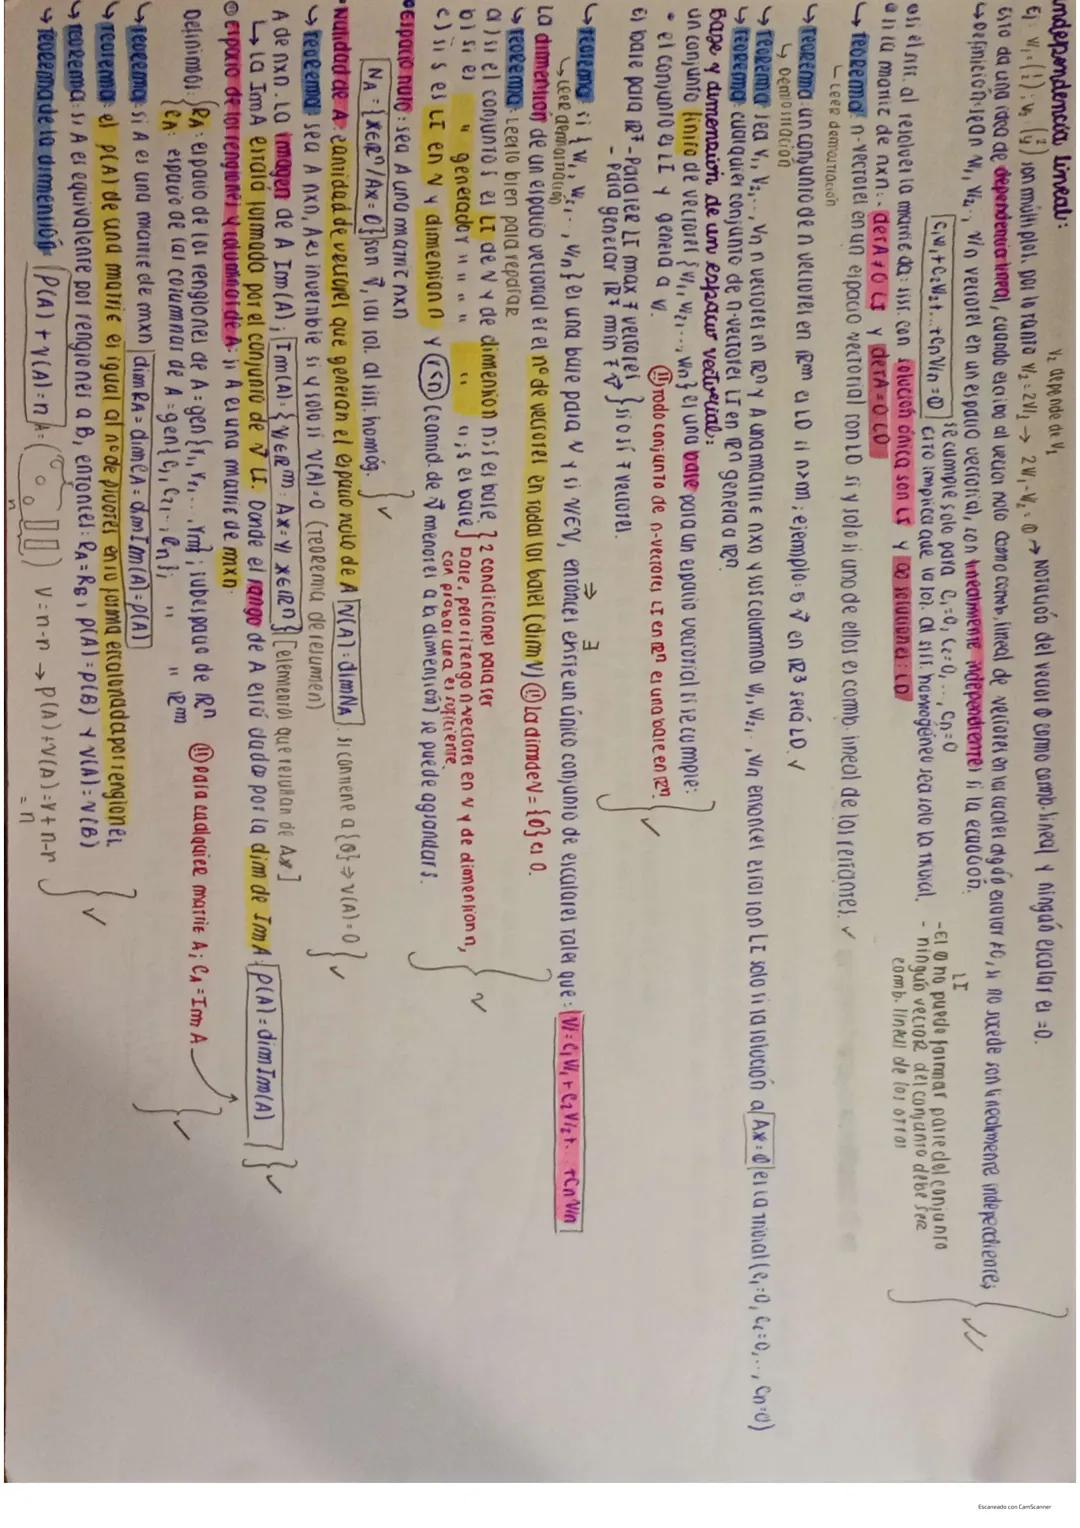 independencia lineal:
V₂ depende de V₁
Ej: V₁=(1 2); V₂ (2 4) son múltiplos, por lo tanto V₂=2V₁ → 2V₁-V₂=0 → Notación del vector 0 como comb. lineal y ningún escalar es =0.
Esto da una idea de dependencia lineal, cuando escribo al vector nulo como comb. lineal de vectores en los cuales algún escalar ≠0, si no sucede son linealmente independientes
↳ Definición: sean V₁, V₂..., Vn vectores en un espacio vectorial, son linealmente independientes si la ecuación.
C₁V₁+C₂V₂+...+CnVn=0 se cumple solo para C₁=0, C₂=0,..., Cn=0
esto implica que la sol. al sist. homogéneo sea solo la trivial.
LI
- El 0 no puede formar parte del conjunto
- ningún vector del conjunto debe ser comb. lineal de los otros
si el sist. al resolver la matriz da: sist. con solución única son LI y ∞ soluciones: LD
si la matriz de nxn: - det A≠0 LI y det A=0 LD
↳ teorema: n-vectores en un espacio vectorial son LD si y solo si uno de ellos es comb. lineal de los restantes ✓
↳ Leer demostración
↳ teorema: un conjunto de n vectores en ℝm es LD si n>m; ejemplo: 5 v en ℝ3 será LD. ✓
↳ Demostración
↳ teorema: sea V₁, V₂,..., Vn n vectores en ℝn y A una matriz nxn y sus columnas V₁, V₂,..., Vn entonces estos son LI solo si la solución a Ax=0 es la trivial (C₁=0, C₂=0,..., Cn=0)
↳ teorema: cualquier conjunto de n-vectores LI en ℝn genera a ℝn.
Base y dimensión de un espacio vectorial:
un conjunto finito de vectores {V₁, V₂,..., Vn} es una base para un espacio vectorial si se cumple:
• el conjunto es LI y genera a V. !! todo conjunto de n-vectores LI en ℝn es una base en ℝn.
Ej base para ℝ7 - Para ser LI max 7 vectores
- Para generar ℝ7 min 7 v } si o sí 7 vectores.
↳ teorema: si {V₁, V₂,..., Vn} es una base para V y si V∈V, entonces existe un único conjunto de escalares tales que: V=C₁V₁+C₂V₂+...+CnVn
⇒ ∃
↳ Leer demostración
La dimensión de un espacio vectorial es el n° de vectores en todas las bases (dim V) !! La dim de V={0} es 0.
↳ teorema: Leerlo bien para repasar
a) si el conjunto S es LI de V y de dimensión n; S es base
b) si S es " generador " " " " "; S es base
} 2 condiciones para ser base, pero si tengo n vectores en V y de dimensión n, con probar una es suficiente
c) si S es LI en V y dimensión n y r<n (cant. de v menores a la dimensión) se puede agrandar S.
• Espacio nulo: sea A una matriz nxn
NA={x∈ℝn/Ax=0} son v, las sol. al sist. homóg.
• Nulidad de A: cantidad de vectores que generan el espacio nulo de A ν(A)=dim NA. si contiene a {0} ⇒ ν(A)=0
↳ teorema: sea A nxn, A es invertible si y solo si ν(A)=0 (teorema de resumen)
A de nxn. La imagen de A Im(A); Im(A)={y∈ℝm: Ax=y x∈ℝn} [elementos que resultan de Ax]
↳ La Im A estará formado por el conjunto de v LI. Donde el rango de A está dado por la dim de Im A: ρ(A)=dim Im(A)
Espacio de los renglones y columnas de A: si A es una matriz de mxn
Definimos: {RA: espacio de los renglones de A=gen{r₁, r₂,..., rm}; subespacio de ℝn
CA: espacio de las columnas de A=gen{C₁, C₂..., Cn}; " " ℝm
!! Para cualquier matriz A; CA=Im A
↳ teorema: si A es una matriz de mxn dim RA=dim CA=dim Im(A)=ρ(A)
↳ teorema: el ρ(A) de una matriz es igual al n° de pivotes en su forma escalonada por renglones
↳ teorema: si A es equivalente por renglones a B, entonces: RA=RB, ρ(A)=ρ(B) y ν(A)=ν(B)
↳ teorema de la dimensión ρ(A)+ν(A)=n
ν=n-r → ρ(A)+ν(A)=r+n-r
=n
Escaneado con CamScanner